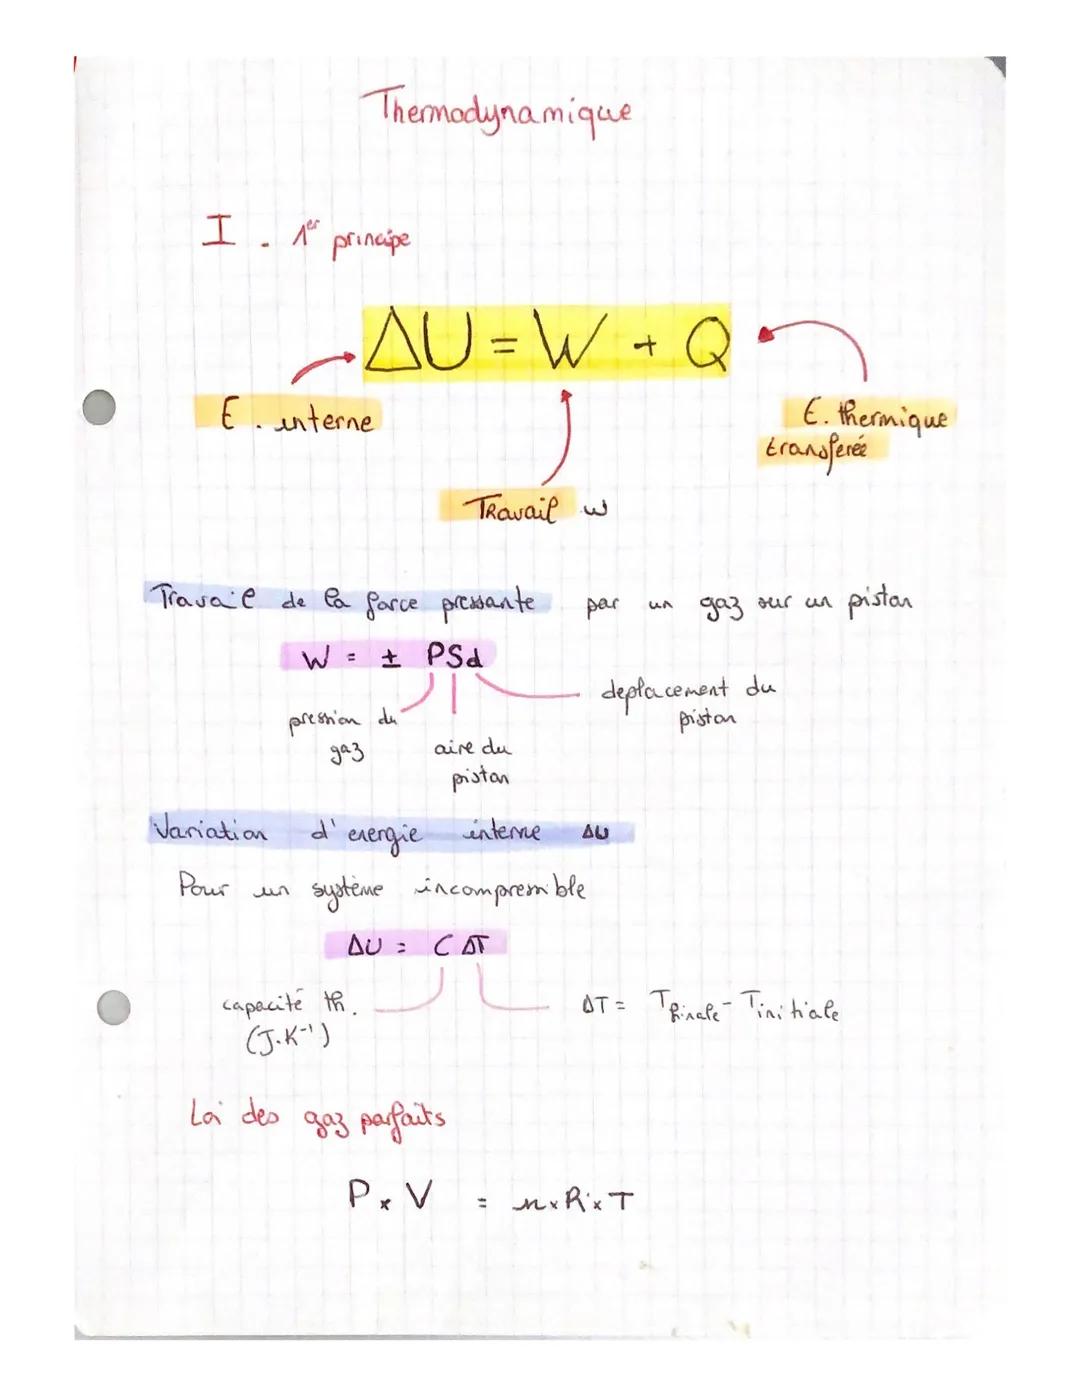 Thermodynamique
I. 1er principe
ΔU = W + Q
E. interne
E. thermique
transferée
Travail w
Travail de la force pressante par un gaz sur un piston
W = ± PSd
deplacement du
piston
pression du
gaz
aire du
piston
Variation d'energie interne ΔU
Pour un système incompressible
ΔU = C ΔT
capacité th.
(J.K⁻¹)
ΔT = Tfinale - Tinitiale
Loi des gaz parfaits
P x V = n x R x T